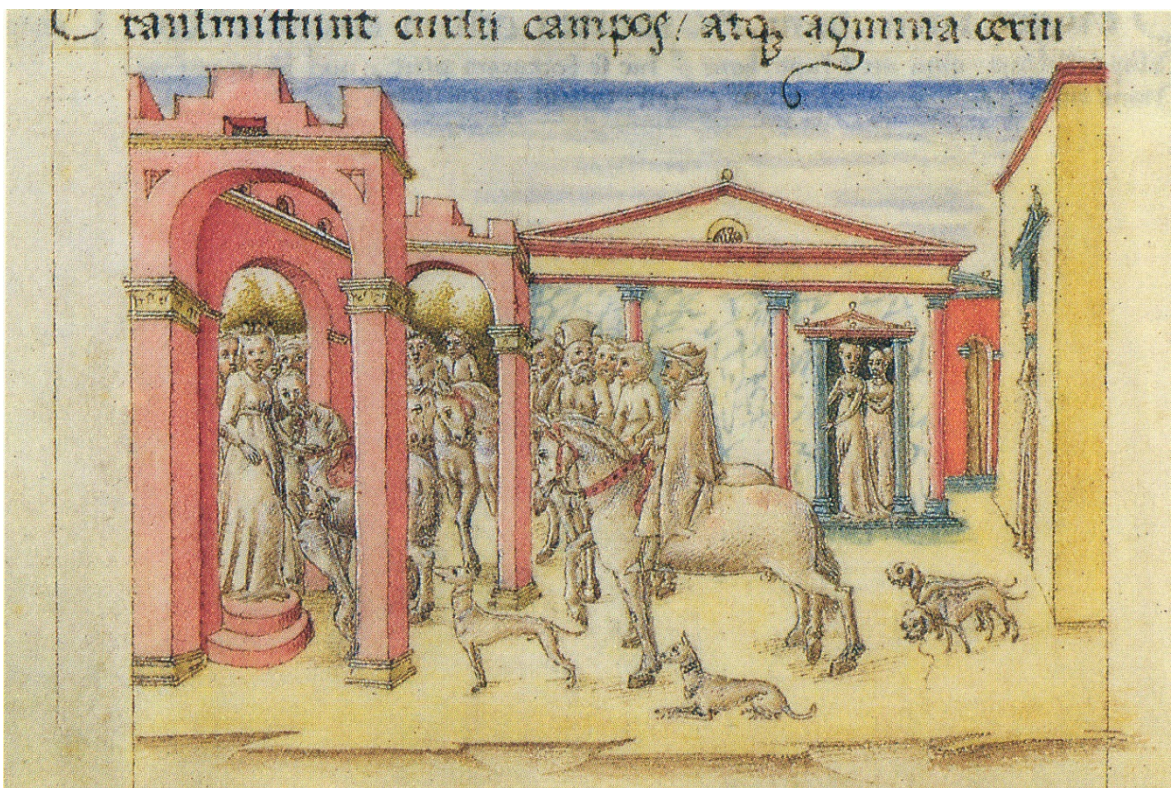 Transmittunt cursu campos / atq agmina cerui